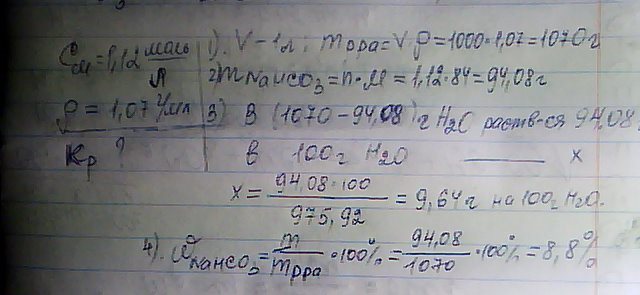 Cм=1,12 моль/л
ρ = 1,07 г/мл
Kр ?
1). V-1л; mрра=V·ρ=1000·1,07=1070г
2) mNaHCO3=n·M=1,12·84=94,08г
3) В (1070-94,08) г H2O раств-ся 94,08
в 100г H2O ——— x
x= 94,08·100 / 975,92 = 9,64г на 100г H2O.
4). ωNaHCO3= m / mрра ·100%= 94,08 / 1070 ·100%=8,8%